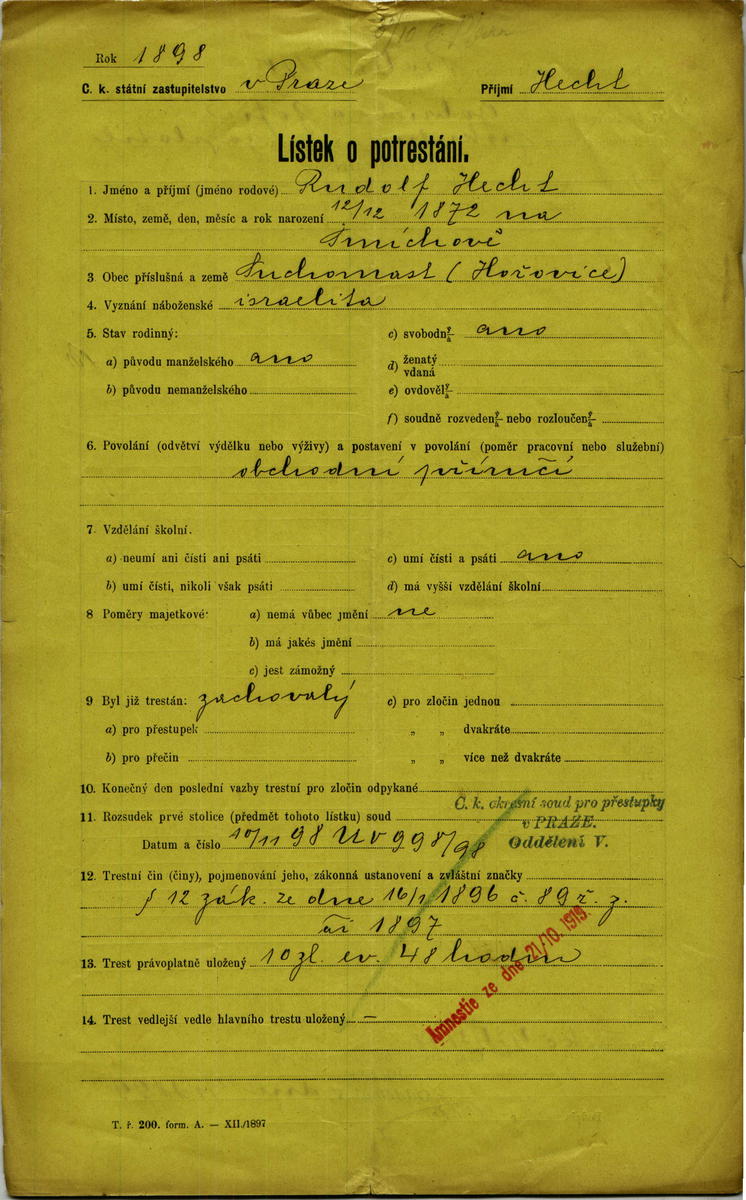 Rok 1898
C. k. státní zastupitelstvo v Praze Příjmí Hecht
Lístek o potrestání.
1. Jméno a příjmí (jméno rodové) Rudolf Hecht
2. Místo, země, den, měsíc a rok narození 12/12 1872 na
Smíchově
3 Obec příslušná a země Suchomast (Hořovice)
4. Vyznání náboženské israelita
5. Stav rodinný: c) svobodný/á ano
a) původu manželského ano d) ženatý vdaná
b) původu nemanželského e) ovdovělý/á
f) soudně rozvedený/á nebo rozloučený/á
6. Povolání (odvětví výdělku nebo výživy) a postavení v povolání (poměr pracovní nebo služební)
obchodní příručí
7. Vzdělání školní.
a) neumí ani čísti ani psáti c) umí čísti a psáti ano
b) umí čísti, nikoli však psáti d) má vyšší vzdělání školní
8 Poměry majetkové: a) nemá vůbec jmění ne
b) má jakés jmění
c) jest zámožný
9 Byl již trestán: zachovalý c) pro zločin jednou
a) pro přestupek „ „ dvakráte
b) pro přečin „ „ více než dvakráte
10. Konečný den poslední vazby trestní pro zločin odpykané
C. k. okresní soud pro přestupky
11. Rozsudek prvé stolice (předmět tohoto lístku) soud v PRAZE.
Datum a číslo 10/11 98 U V 998/98 Oddělení V.
12. Trestní čin (činy), pojmenování jeho, zákonná ustanovení a zvláštní značky
§ 12 zák. ze dne 16/1 1896 č. 89 ř. z.
1897
13. Trest právoplatně uložený 10 zl. ev. 48 hodin
Amnestie ze dne 21/10. 1919.
14. Trest vedlejší vedle hlavního trestu uložený —
T. ř. 200. form. A. — XII./1897